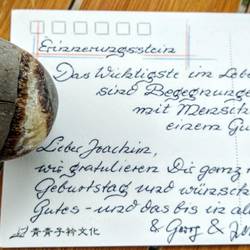 Erinnerungsstein
Das Wichtigste im Lebe
sind Begegnunge
mit Mensche
einem Gu
Lieber Joachim,
wir gratulieren Dir ganz h
Geburtstag und wünsche
Gutes - und das bis in al
& Georg & Ju
青青子衿文化